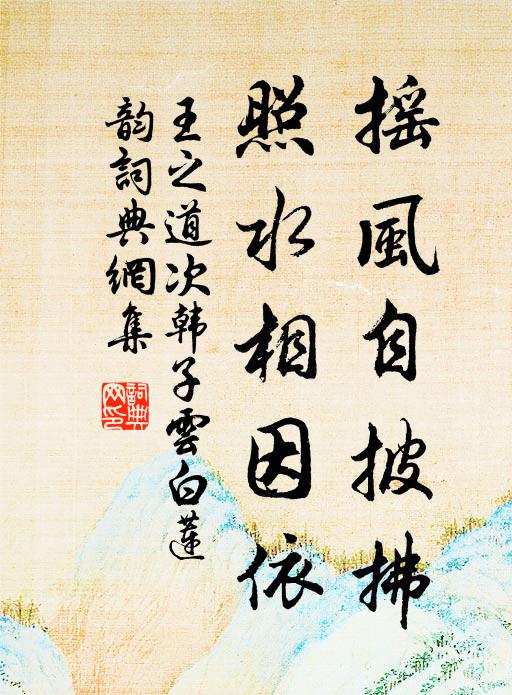 摇風自披拂
照水相因依
王之道次韩子雲白蓮
韵詞典網集
詞典网印